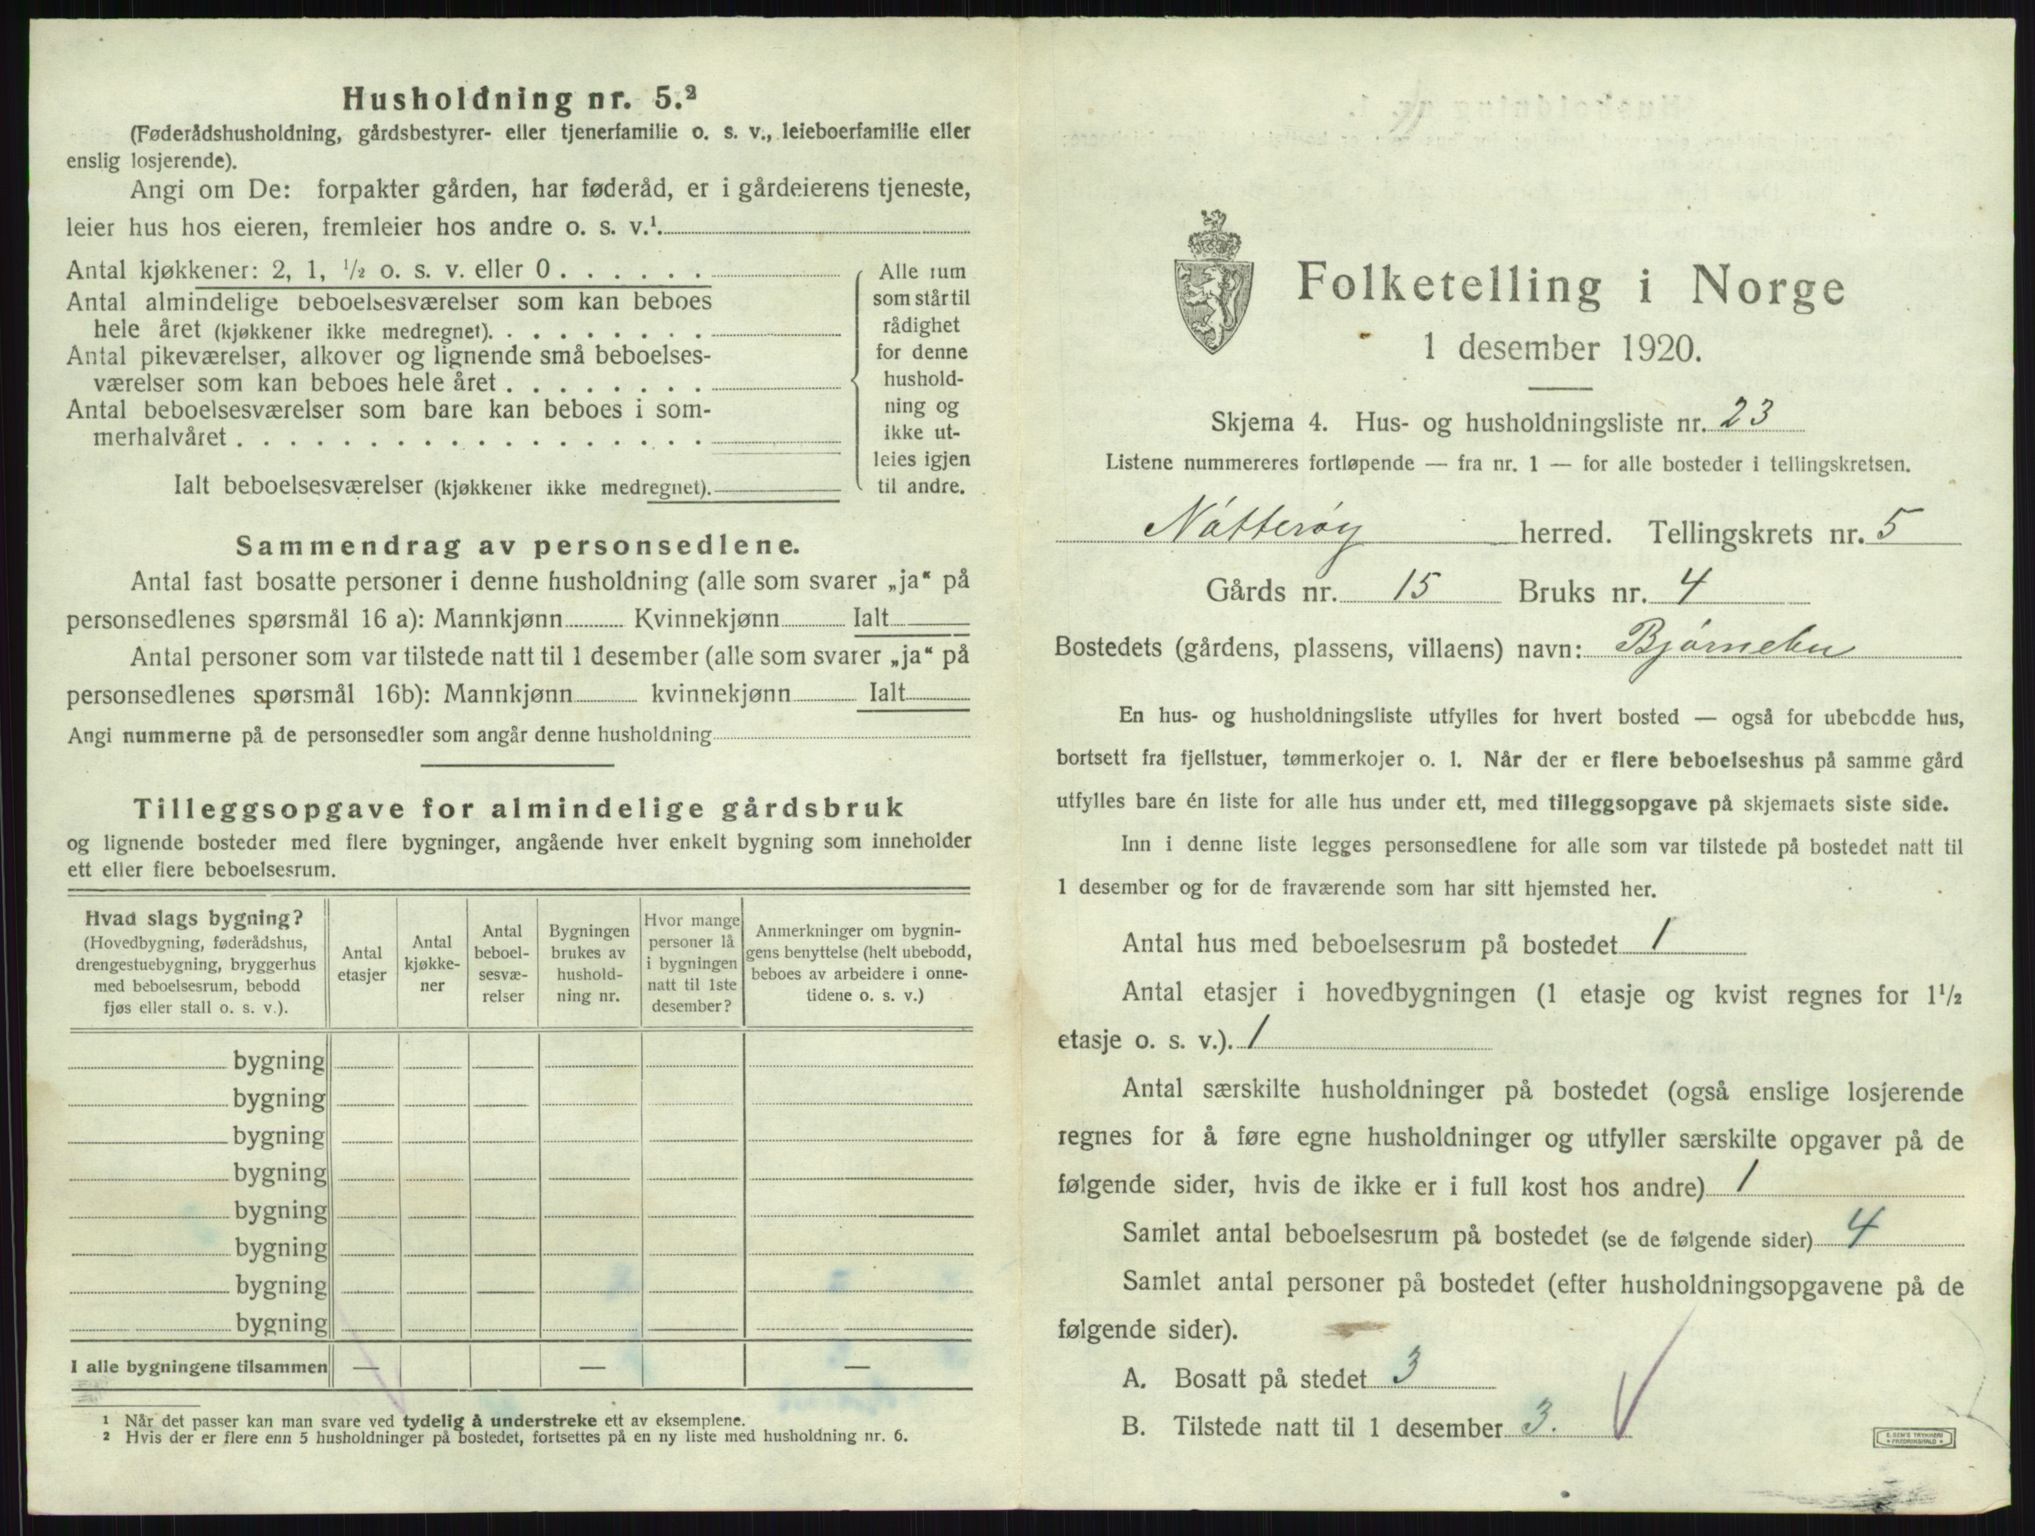 Husholdning nr. 5.²
(Føderådshusholdning, gårdsbestyrer- eller tjenerfamilie o. s. v., leieboerfamilie eller
enslig losjerende).
Angi om De: forpakter gården, har føderåd, er i gårdeierens tjeneste,
leier hus hos eieren, fremleier hos andre o. s. v.¹.
Antal kjøkkener: 2, 1, ½ o. s. v. eller 0 . . . . . .
Antal almindelige beboelsesværelser som kan beboes
hele året (kjøkkener ikke medregnet). . . . . . . . .
Antal pikeværelser, alkover og lignende små beboelses-
værelser som kan beboes hele året . . . . . . . .
Antal beboelsesværelser som bare kan beboes i som-
merhalvåret . . . . . . . . . . . . . . . . . .
Ialt beboelsesværelser (kjøkkener ikke medregnet).
Alle rum
som står til
rådighet
for denne
hushold-
ning og
ikke ut-
leies igjen
til andre.
Sammendrag av personsedlene.
Antal fast bosatte personer i denne husholdning (alle som svarer „ja“ på
personsedlenes spørsmål 16 a): Mannkjønn Kvinnekjønn Ialt
Antal personer som var tilstede natt til 1 desember (alle som svarer „ja“ på
personsedlenes spørsmål 16b): Mannkjønn kvinnekjønn Ialt
Angi nummerne på de personsedler som angår denne husholdning
Tilleggsopgave for almindelige gårdsbruk
og lignende bosteder med flere bygninger, angående hver enkelt bygning som inneholder
ett eller flere beboelsesrum.
Hvad slags bygning?
(Hovedbygning, føderådshus,
drengestuebygning, bryggerhus
med beboelsesrum, bebodd
fjøs eller stall o. s. v.).
Antal
etasjer
Antal
kjøkke-
ner
Antal
beboel-
sesvæ-
relser
Bygningen
brukes av
hushold-
ning nr.
Hvor mange
personer lå
i bygningen
natt til 1ste
desember?
Anmerkninger om bygnin-
gens benyttelse (helt ubebodd,
beboes av arbeidere i onne-
tidene o. s. v.)
bygning
bygning
bygning
bygning
bygning
bygning
bygning
bygning
I alle bygningene tilsammen — — —
¹ Når det passer kan man svare ved tydelig å understreke ett av eksemplene.
² Hvis der er flere enn 5 husholdninger på bostedet, fortsettes på en ny liste med husholdning nr. 6.
Folketelling i Norge
1 desember 1920.
Skjema 4. Hus- og husholdningsliste nr. 23
Listene nummereres fortløpende — fra nr. 1 — for alle bosteder i tellingskretsen.
Nøtterøy herred. Tellingskrets nr. 5
Gårds nr. 15 Bruks nr. 4
Bostedets (gårdens, plassens, villaens) navn: Bjørnebu
En hus- og husholdningsliste utfylles for hvert bosted — også for ubebodde hus,
bortsett fra fjellstuer, tømmerkojer o. l. Når der er flere beboelseshus på samme gård
utfylles bare én liste for alle hus under ett, med tilleggsopgave på skjemaets siste side.
Inn i denne liste legges personsedlene for alle som var tilstede på bostedet natt til
1 desember og for de fraværende som har sitt hjemsted her.
Antal hus med beboelsesrum på bostedet 1
Antal etasjer i hovedbygningen (1 etasje og kvist regnes for 1½
etasje o. s. v.). 1
Antal særskilte husholdninger på bostedet (også enslige losjerende
regnes for å føre egne husholdninger og utfyller særskilte opgaver på de
følgende sider, hvis de ikke er i full kost hos andre) 1
Samlet antal beboelsesrum på bostedet (se de følgende sider) 4
Samlet antal personer på bostedet (efter husholdningsopgavene på de
følgende sider).
A. Bosatt på stedet 3
B. Tilstede natt til 1 desember 3.
E. SEM'S TRYKKERI
FREDRIKSHALD